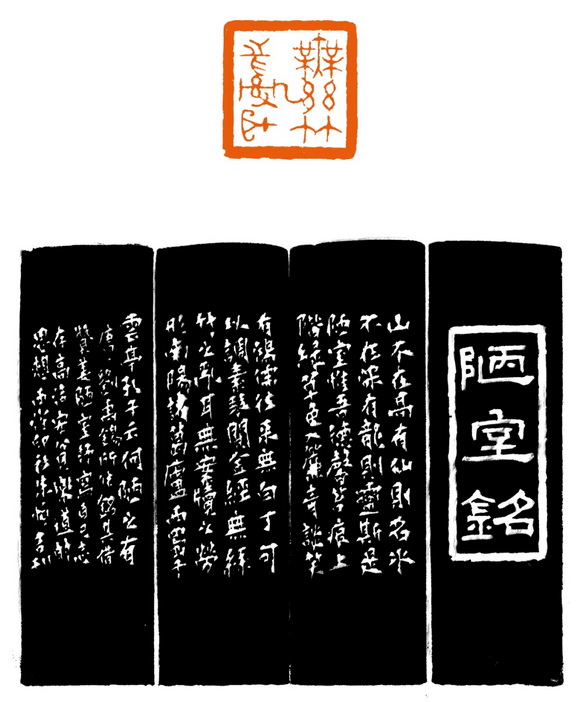 無絲竹
之亂耳
陋室銘
山不在高有仙則名水
不在深有龍則靈斯是
陋室惟吾德馨苔痕上
階綠草色入簾青談笑
有鴻儒往來無白丁可
以調素琴閱金經無絲
竹之亂耳無案牘之勞
形南陽諸葛廬西蜀子
雲亭孔子云何陋之有
唐劉禹錫所作銘其借
贊美陋室抒寫自己志
存高洁安貧樂道的
思想